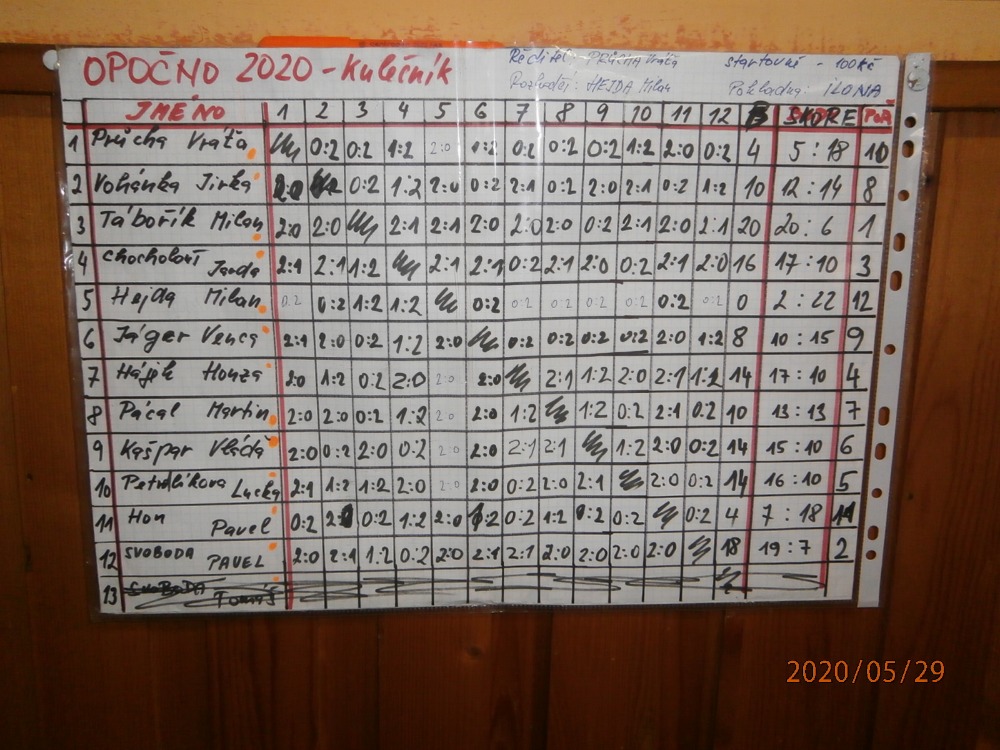 OPOČNO 2020 - Kulečník
Ředitel: PRŮCHA Vráťa startovné - 100 Kč
Rozhodčí: HEJDA Milan Pokladna: ILONA
JMÉNO 1 2 3 4 5 6 7 8 9 10 11 12 B SKÓRE
1 Průcha Vráťa 0:2 0:2 1:2 2:0 1:2 0:2 0:2 0:2 1:2 2:0 0:2 4 5:18 10
2 Vohánka Jirka 2:0 0:2 1:2 2:0 0:2 2:1 0:2 2:0 2:1 0:2 1:2 10 12:14 8
3 Tábořík Milan 2:0 2:0 2:1 2:1 2:0 2:0 2:0 0:2 2:1 2:0 2:1 20 20:6 1
4 Jarda 2:1 2:1 1:2 2:1 2:1 0:2 2:1 2:0 0:2 2:1 2:0 16 17:10 3
5 Hejda Milan 0:2 0:2 1:2 1:2 0:2 0:2 0:2 0:2 0:2 0:2 0:2 0 2:22 12
6 Jáger Venca 2:1 2:0 0:2 1:2 2:0 0:2 0:2 0:2 0:2 2:0 1:2 8 10:15 9
7 Honza 2:0 1:2 0:2 2:0 2:0 2:0 2:1 1:2 2:0 2:1 1:2 14 17:10 4
8 Pácal Martin 2:0 2:0 0:2 1:2 2:0 2:0 1:2 1:2 0:2 2:1 0:2 10 13:13 7
9 Kašpar Vláďa 2:0 0:2 2:0 0:2 2:0 2:0 2:1 2:1 1:2 2:0 0:2 14 15:10 6
10 Petrdlíkova Lucka 2:1 1:2 1:2 2:0 2:0 2:0 0:2 2:0 2:1 2:0 0:2 14 16:10 5
11 Hon Pavel 0:2 2:0 0:2 1:2 2:0 0:2 0:2 1:2 0:2 0:2 0:2 4 7:18 11
12 SVOBODA PAVEL 2:0 2:1 1:2 0:2 2:0 2:1 2:1 2:0 2:0 2:0 2:0 18 19:7 2
13 SVOBODA Tomáš
2020/05/29